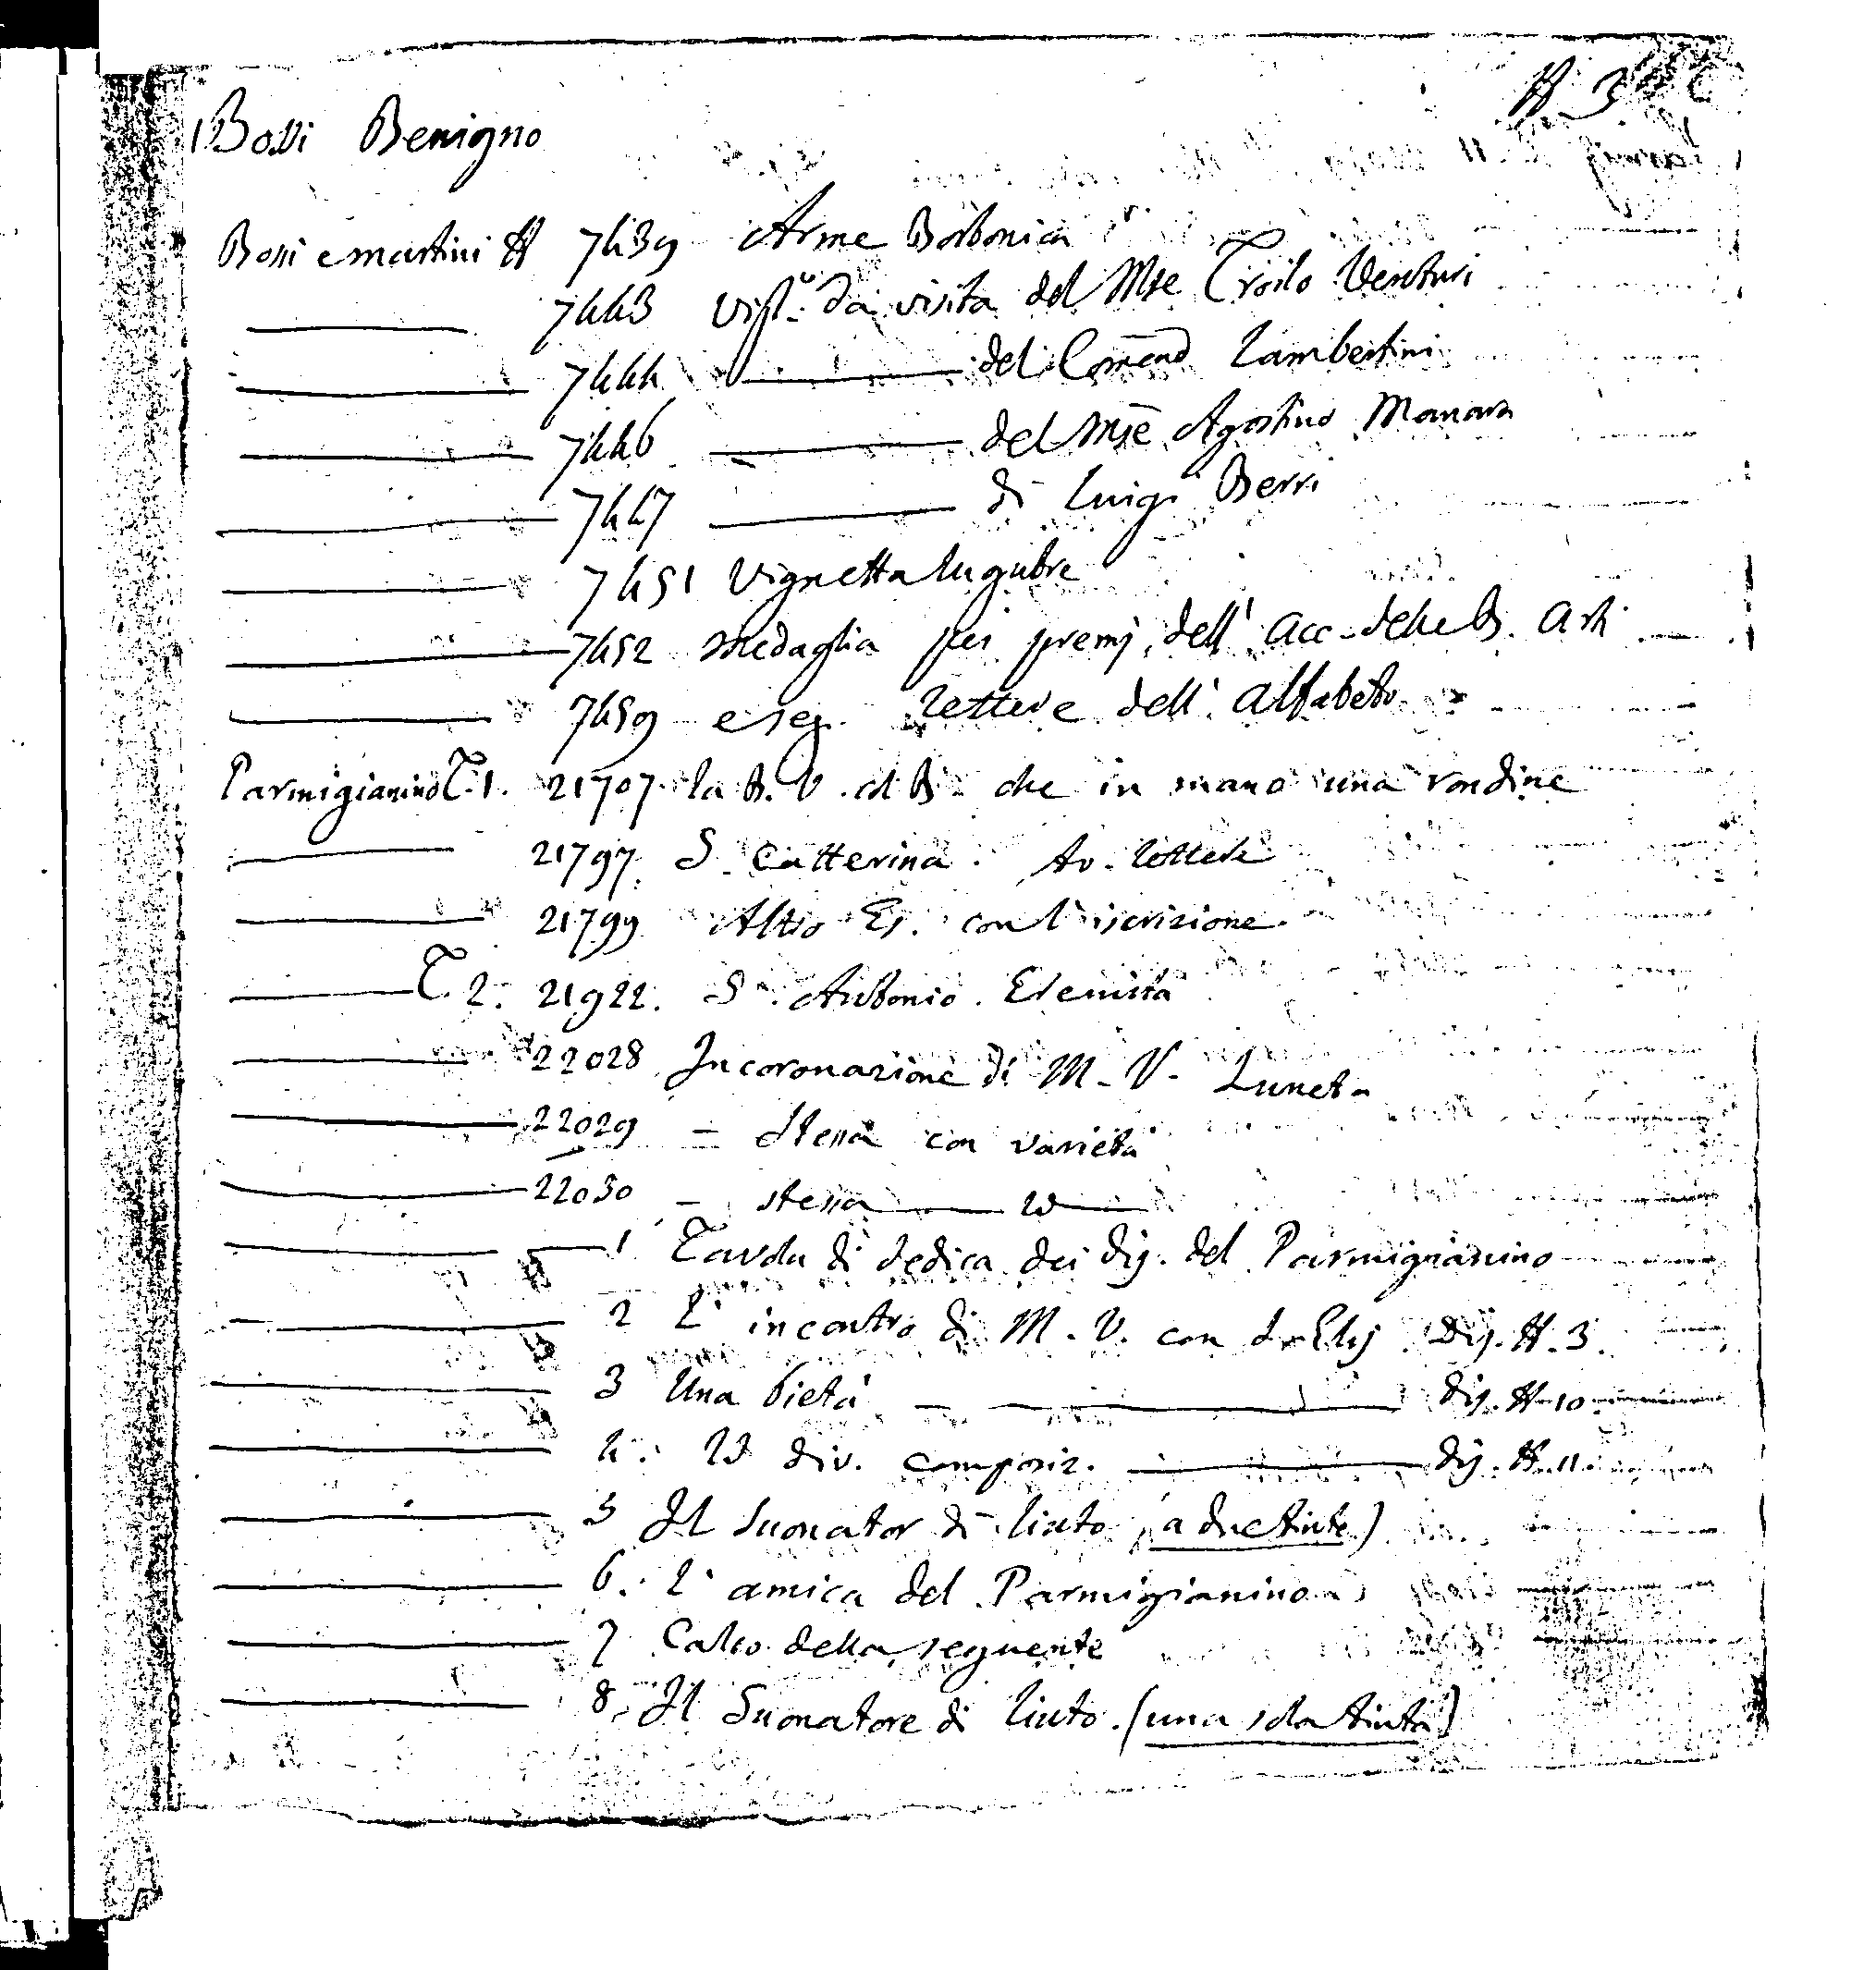 Bossi Benigno
Bossi e martini # 7439 Arme Borbonica
7443 Vigl. da visita del Mse Troilo Venturi
7444 del Comend Lambertini
7446 del Mse Agostino Manara
7447 di Luigi Berri
7451 Vignetta lugubre
7452 Medaglia pei premj dell' Acc. delle B. Arti
7459 e seg. Lettere dell' alfabeto
Parmigianino T. 1. 21707. la B. V. col B. che in mano una rondine
21797. S. Catterina. Av. lettere
21799 Altro Es. con l'iscrizione.
T. 2. 21922. S. Antonio Eremita
22028 Incoronazione di M. V. Luneta
22029 - Stessa con varietà
22030 - stessa id
1 Tavola di dedica dei Dis. del Parmigianino
2 L' incontro di M. V. con S. Elis. Dis. # 3.
3 Una Pietà Dis. # 10
4. Id div. composiz. Dis. # 11.
5 Il Suonator di liuto (a due tinte)
6. L' amica del Parmigianino
7 Calco della seguente
8. Il Suonatore di liuto. (una sola tinta)